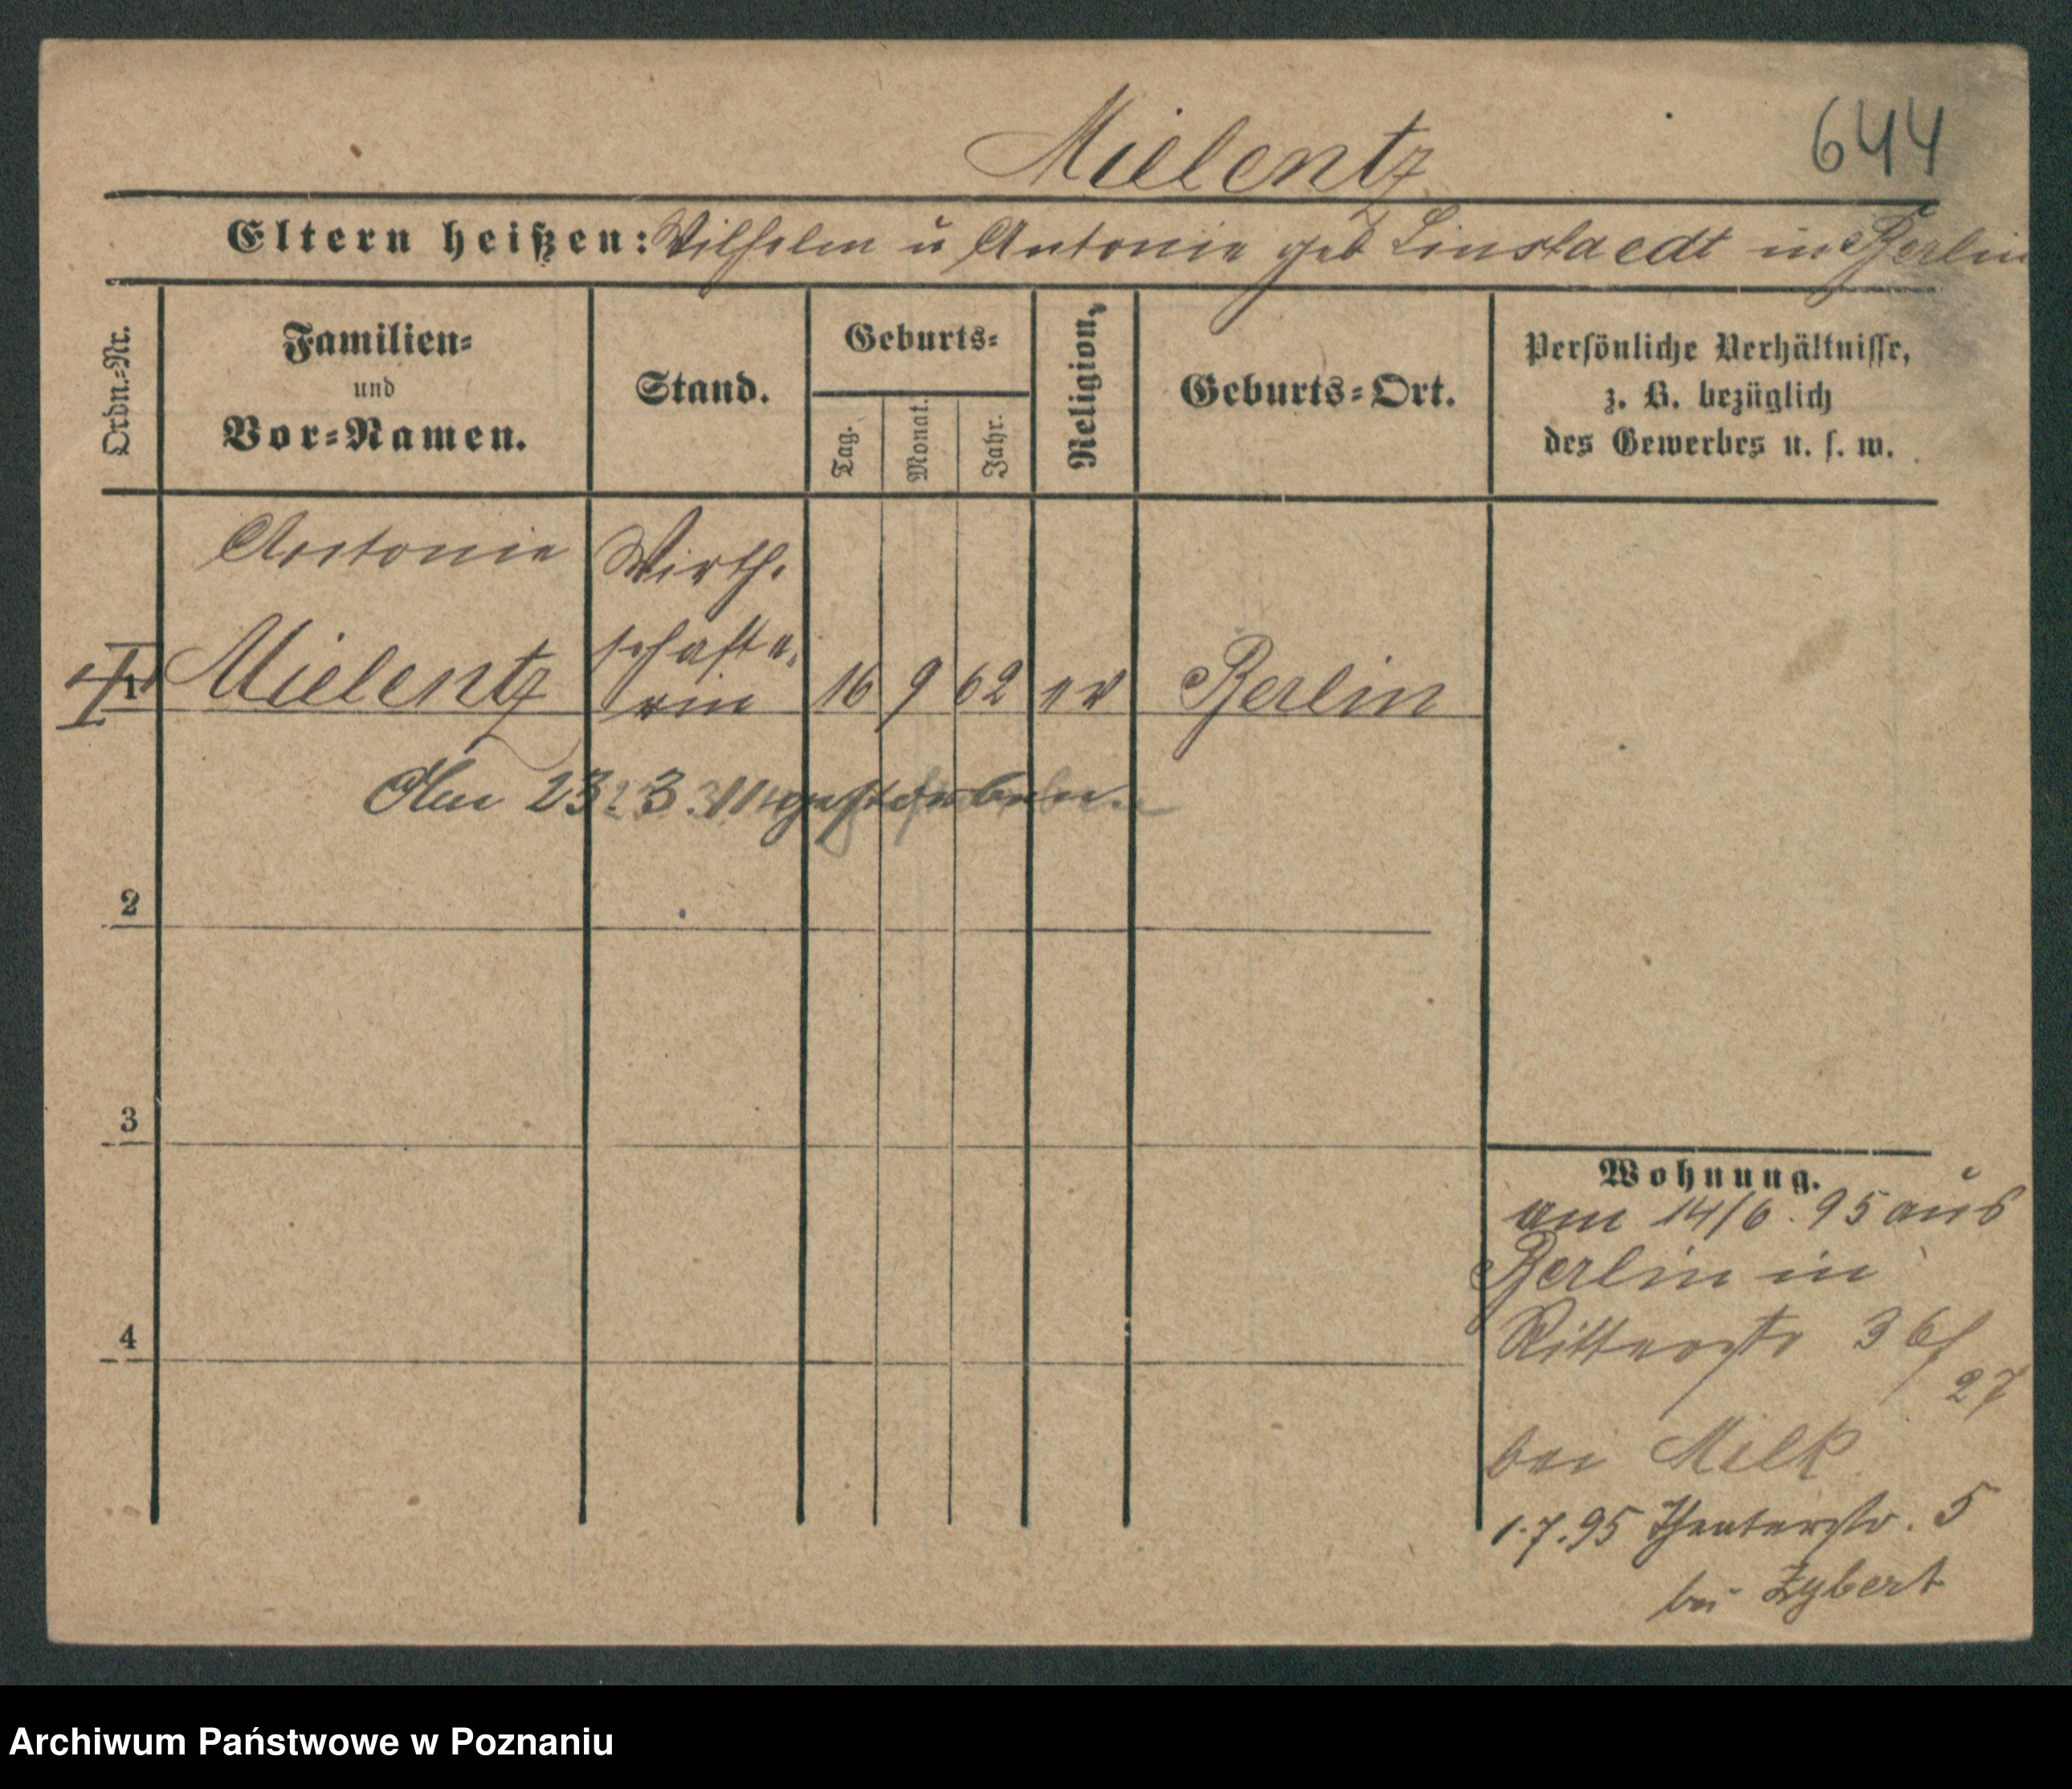 644
Mielentz
Eltern heißen: Wilhelm u Antonie geb Linstaedt in Berlin
Ordn.-Nr.
Familien-
und
Vor-Namen.
Stand.
Geburts-
Tag.
Monat.
Jahr.
Religion,
Geburts-Ort.
Persönliche Verhältnisse,
z. B. bezüglich
des Gewerbes u. s. w.
Antonie Wirth.
schafte.
1 Mielentz rin 16 9 62 ev Berlin
Am 23 3 11 gestorben.
2
3
4
Wohnung.
am 14/6. 95 aus
Berlin in
Ritterstr 36/
27
bei Milk
1.7.95 Theaterstr. 5
bei Zybert
Archiwum Państwowe w Poznaniu